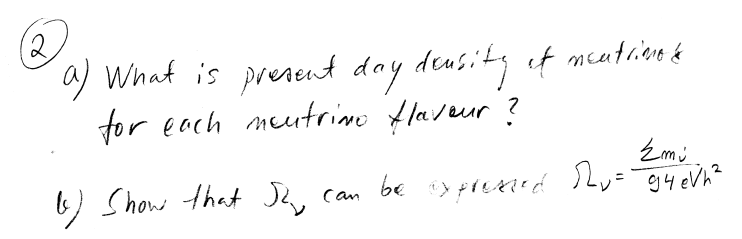 2
a) What is present day density of neutrinos
for each neutrino flavour ?
b) Show that Ων can be expressed Ων = Σmi / 94 eVh²